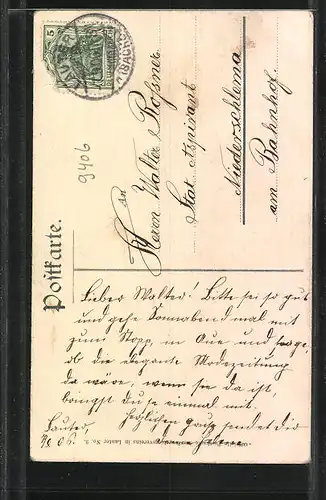 5
LAUTER
(SACHSEN)
9406
Postkarte.
An
Herrn Walter Roßner
Stat. Aspirant
Niederschlema
am Bahnhof.
Lieber Walter! Bitte sei so gut
und gehe Sonnabend mal mit
zum Stopp, in Aue und sage,
ob die elegante Modezeitung
da wäre, wenn sie da ist,
bringst du sie einmal mit.
Herzlichen Gruß sendet dir
Lauter,
06.
in Lauter No. 3.